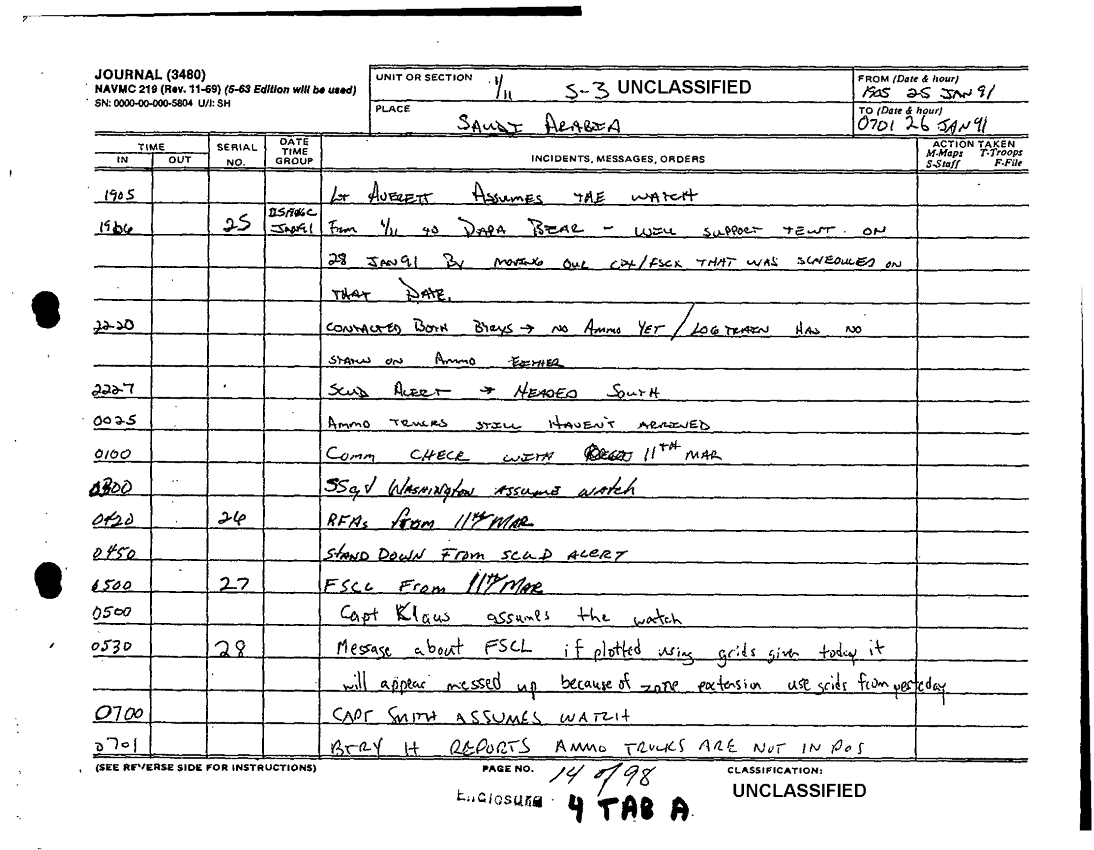 JOURNAL (3480)
NAVMC 219 (Rev. 11-69) (5-63 Edition will be used)
SN: 0000-00-000-5804 U/I: SH
UNIT OR SECTION 1/11 S-3 UNCLASSIFIED
PLACE SAUDI ARABIA
FROM (Date & hour)
1905 25 JAN 91
TO (Date & hour)
0701 26 JAN 91
TIME
IN OUT
SERIAL NO.
DATE TIME GROUP
INCIDENTS, MESSAGES, ORDERS
ACTION TAKEN
M-Maps T-Troops
S-Staff F-File
1905 LT AVERETT ASSUMES THE WATCH
1906 25 JAN91 From 1/11 to DAPA BEAR - WILL SUPPORT TEWT ON
28 JAN 91 By MOVING OUR CPX/FSCX THAT WAS SCHEDULED ON
THAT DATE.
2220 CONTACTED BOTH Btrys → NO Ammo YET / LOGTRAIN HAS NO
ON Ammo EITHER
2227 SCUD ALERT → HEADED SOUTH
0025 Ammo TRUCKS STILL HAVEN'T ARRIVED
0100 Comm CHECK WITH 11TH MAR
0300 SSgt WASHINGTON ASSUME WATCH
0420 26 RFAs from 11th MAR
0450 STAND DOWN From SCUD ALERT
0500 27 FSCL From 11th MAR
0500 Capt Klaus assumes the watch
0530 28 Message about FSCL if plotted using grids given today it
will appear messed up because of zone extension use grids from yesterday
0700 CAPT SMITH ASSUMES WATCH
0701 BTRY H REPORTS AMMO TRUCKS ARE NOT IN POS
(SEE REVERSE SIDE FOR INSTRUCTIONS)
PAGE NO. 14 of 98
CLASSIFICATION:
UNCLASSIFIED
Enclosure 4 TAB A